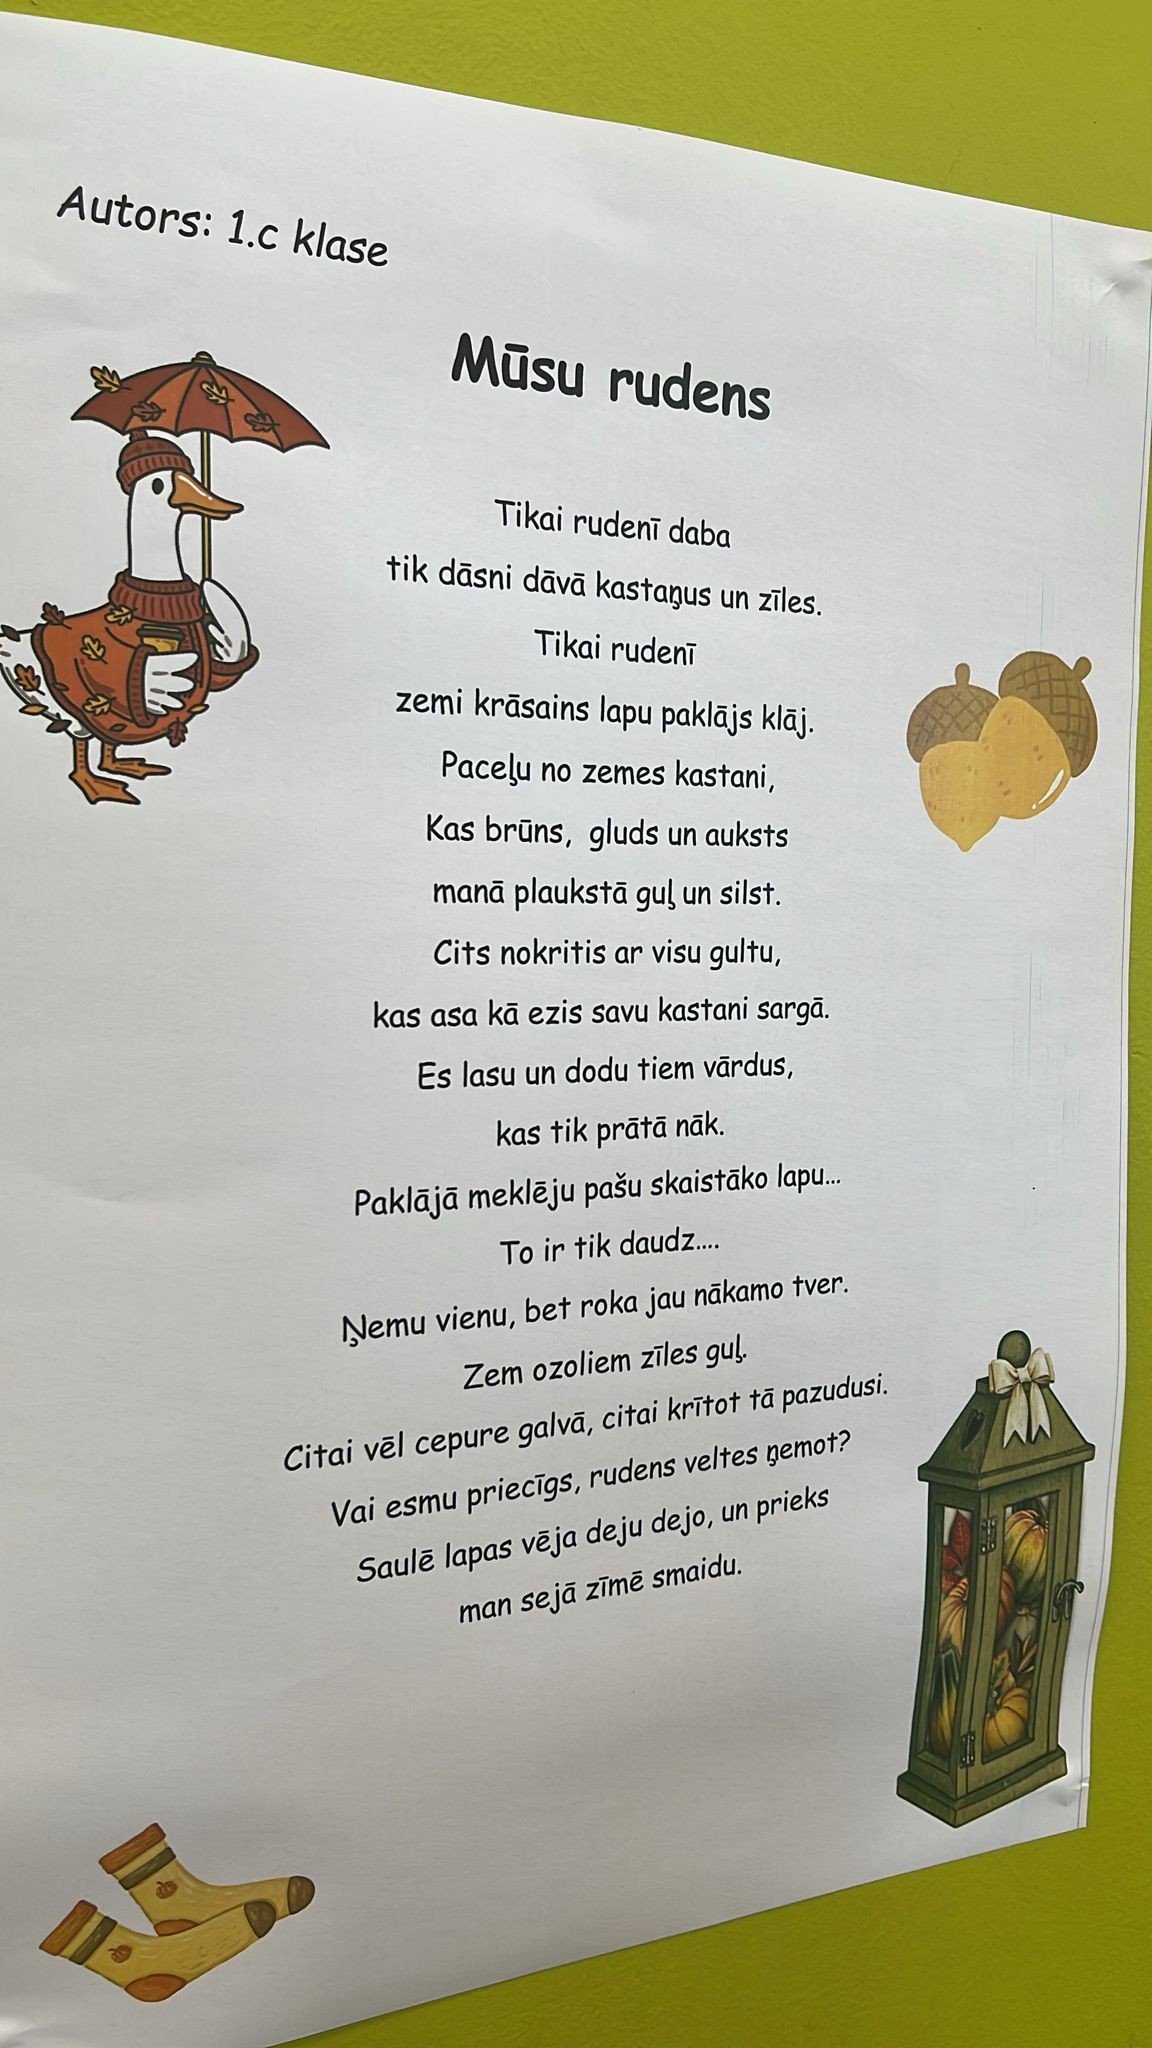 Autors: 1.c klase
Mūsu rudens
Tikai rudenī daba
tik dāsni dāvā kastaņus un zīles.
Tikai rudenī
zemi krāsains lapu paklājs klāj.
Paceļu no zemes kastani,
Kas brūns, gluds un auksts
manā plaukstā guļ un silst.
Cits nokritis ar visu gultu,
kas asa kā ezis savu kastani sargā.
Es lasu un dodu tiem vārdus,
kas tik prātā nāk.
Paklājā meklēju pašu skaistāko lapu...
To ir tik daudz....
Ņemu vienu, bet roka jau nākamo tver.
Zem ozoliem zīles guļ.
Citai vēl cepure galvā, citai krītot tā pazudusi.
Vai esmu priecīgs, rudens veltes ņemot?
Saulē lapas vēja deju dejo, un prieks
man sejā zīmē smaidu.